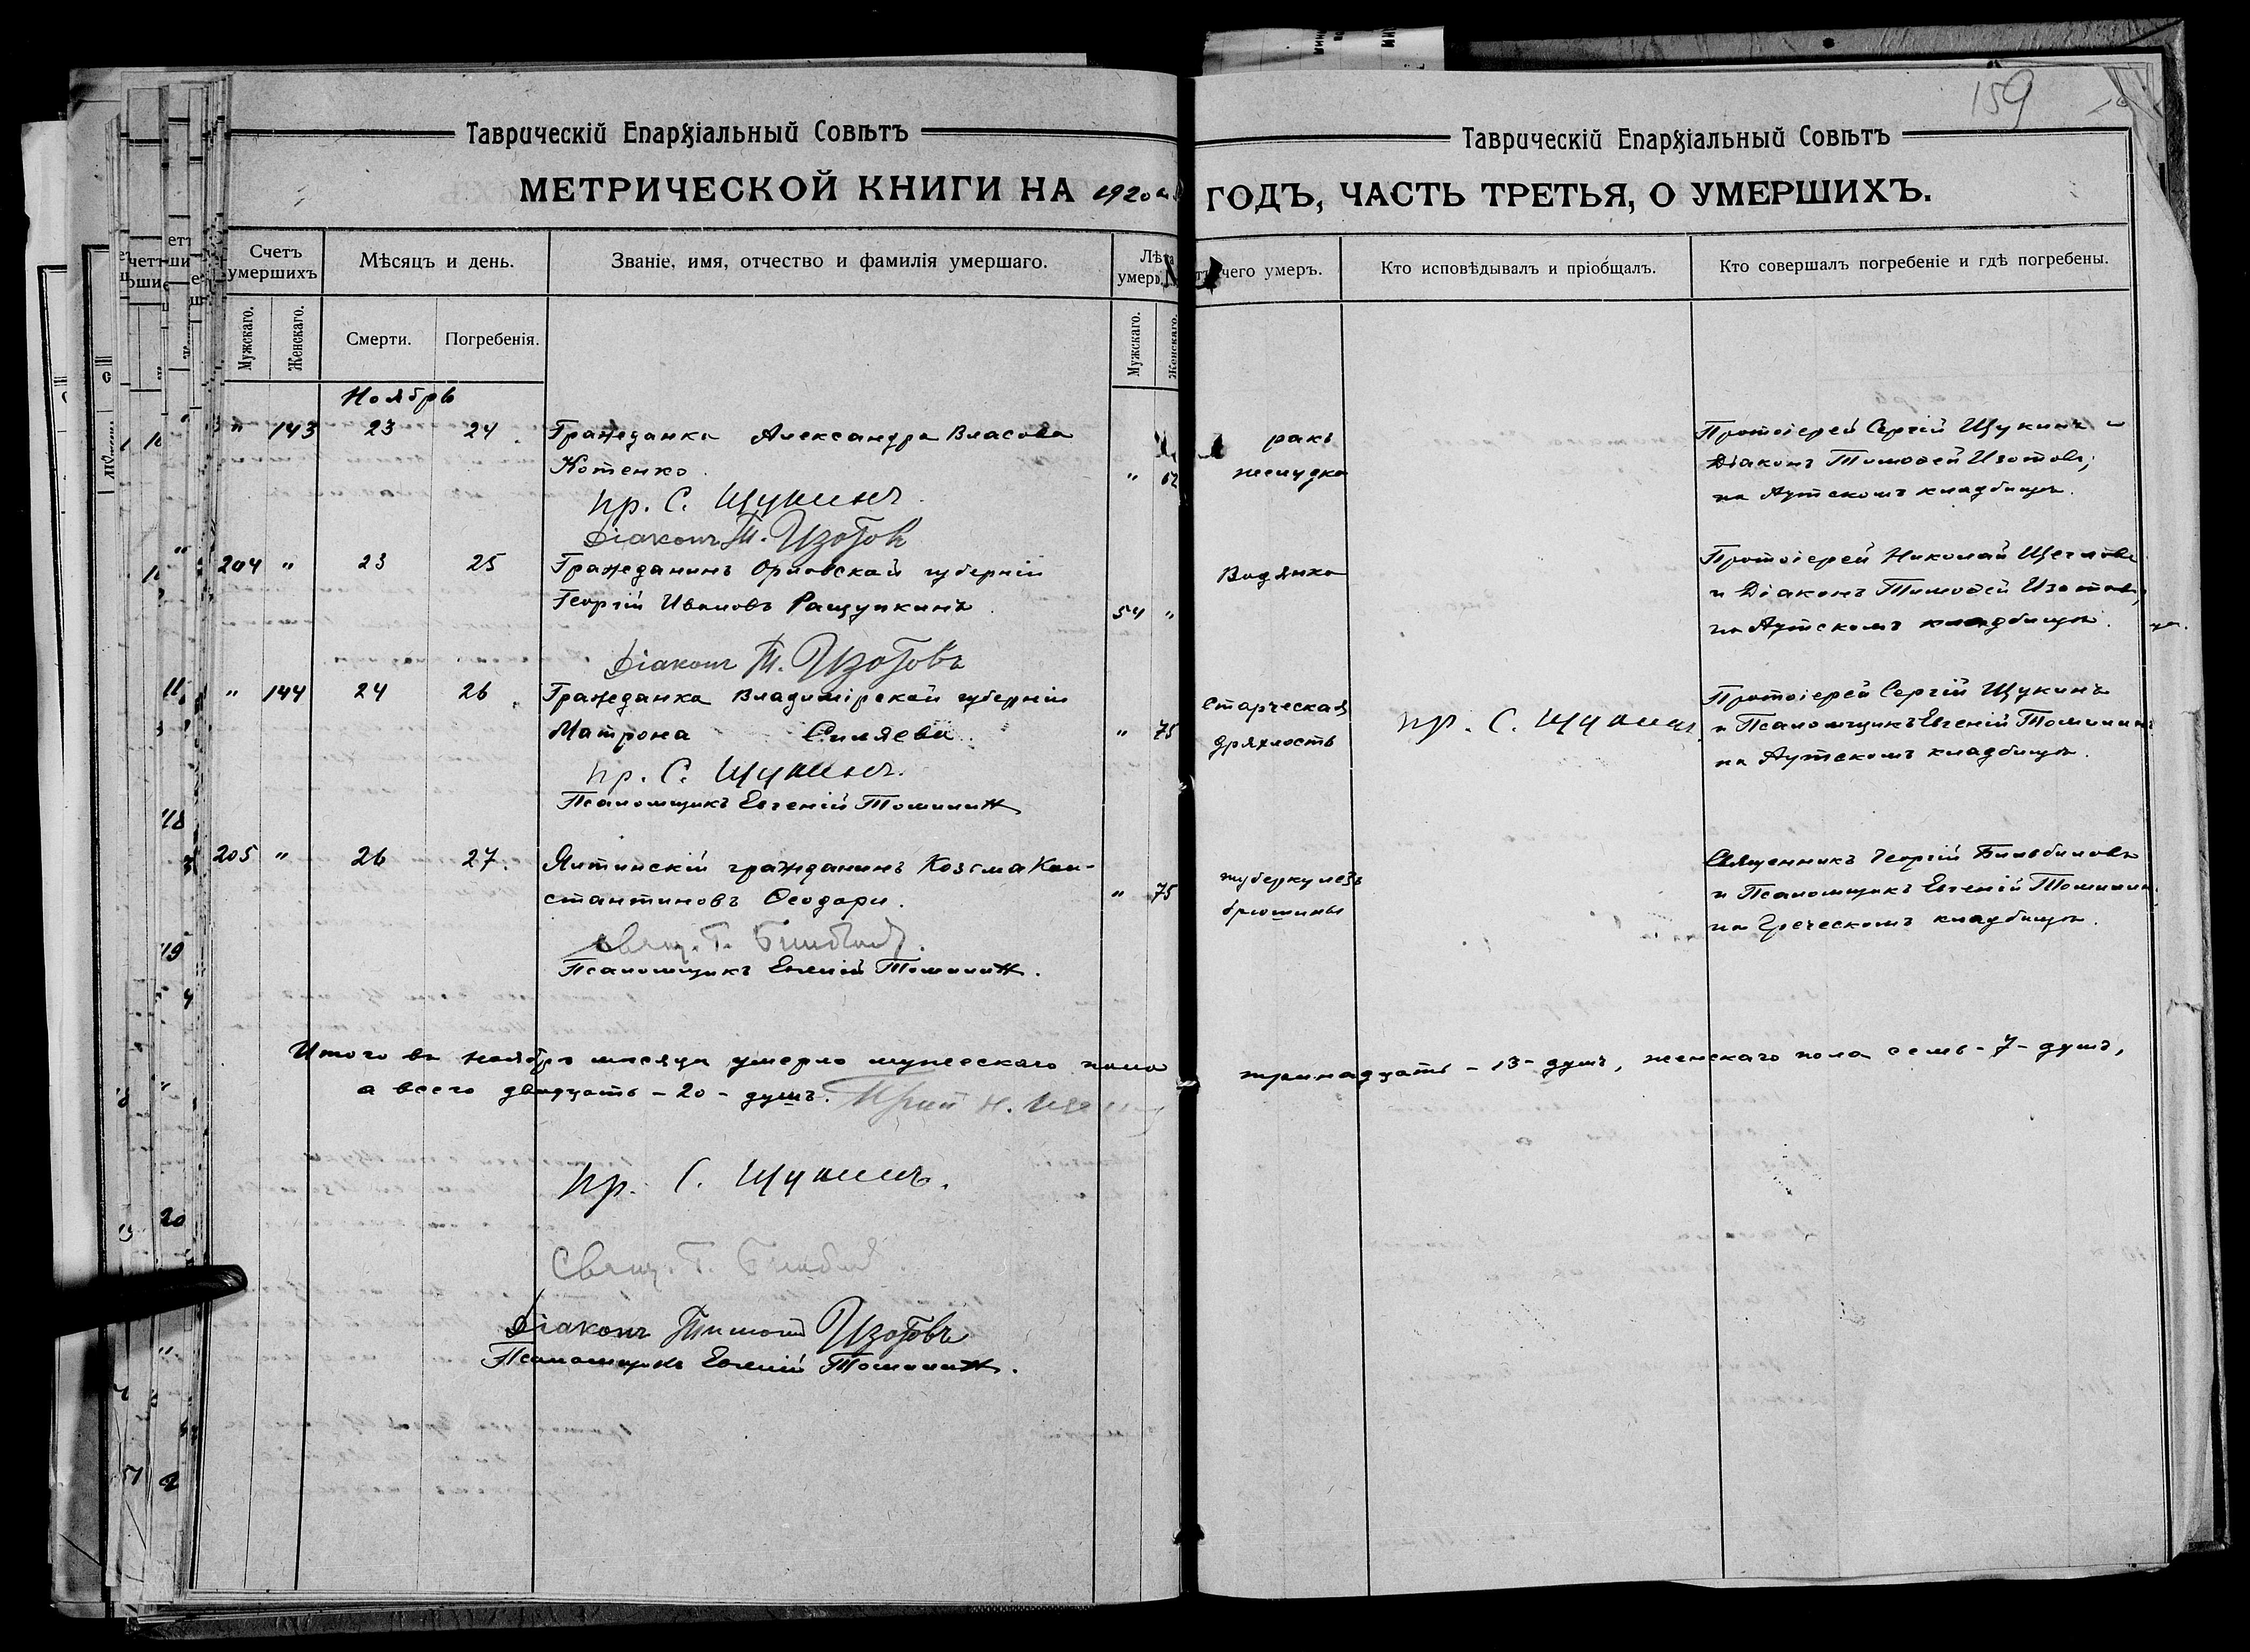 159
Таврическій Епархіальный Совѣтъ
Таврическій Епархіальный Совѣтъ
МЕТРИЧЕСКОЙ КНИГИ НА 1920
ГОДЪ, ЧАСТЬ ТРЕТЬЯ, О УМЕРШИХЪ.
Счетъ умершихъ
Мѣсяцъ и день.
Званіе, имя, отчество и фамилія умершаго.
чего умеръ.
Кто исповѣдывалъ и пріобщалъ.
Кто совершалъ погребеніе и гдѣ погребены.
Мужскаго.
Женскаго.
Смерти.
Погребенія.
Мужскаго.
Женскаго.
Ноябрь
" 143 23 24
Гражданка Александра Власова
Котенко.
" 62
ракъ
желудка
Протоіерей Сергій Щукинъ и
Діаконъ Тимоѳей Изотовъ,
на Аутскомъ кладбищѣ.
пр. С. Щукинъ.
Діаконъ Т. Изотовъ
204 " 23 25
Гражданинъ Орловской губерніи
Георгій Ивановъ Ращупкинъ.
54 "
Водянка
Протоіерей Николай Щегловъ
и Діаконъ Тимоѳей Изотовъ,
на Аутскомъ кладбищѣ.
Діаконъ Т. Изотовъ
" 144 24 26
Гражданка Владимірской губерніи
Матрона Силяева.
" 75
Старческая
дряхлость
пр. С. Щукинъ.
Протоіерей Сергій Щукинъ
и Псаломщикъ Евгеній Томилинъ
на Аутскомъ кладбищѣ.
пр. С. Щукинъ.
Псаломщикъ Евгеній Томилинъ
205 " 26 27.
Ялтинскій гражданинъ Козьма Кон-
стантиновъ Ѳеодори.
" 75
туберкулезъ
брюшины
Священникъ Георгій Бильбиловъ
и Псаломщикъ Евгеній Томилинъ
на Греческомъ кладбищѣ.
Свящ. Г.
Псаломщикъ Евгеній Томилинъ.
Итого въ ноябрѣ мѣсяцѣ умерло мужескаго пола тринадцать - 13 - душъ, женскаго пола семь - 7 - душъ,
а всего двадцать - 20 - душъ.
пр. С. Щукинъ.
Свящ. Г.
Діаконъ Тимоѳей Изотовъ
Псаломщикъ Евгеній Томилинъ.